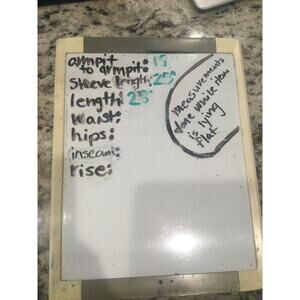 armpit
to armpit: 15
sleeve length: 25"
length: 23"
waist:
hips:
inseam:
rise:
measurements
done while item
is lying
flat